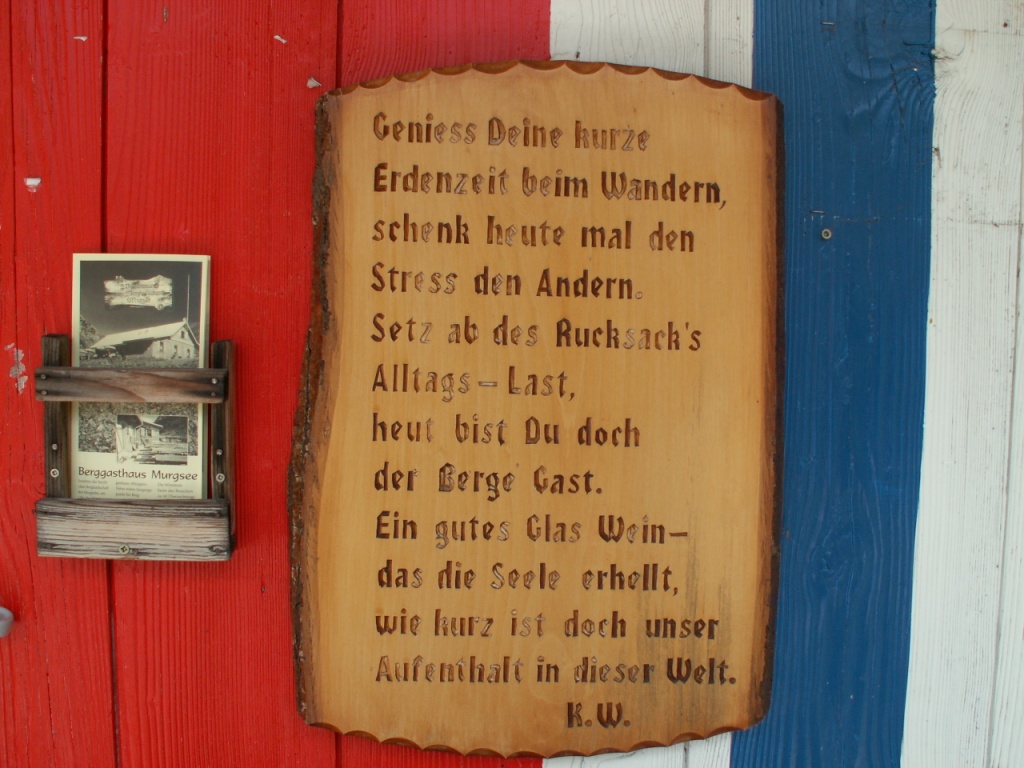 Geniess Deine kurze
Erdenzeit beim Wandern,
schenk heute mal den
Stress den Andern.
Setz ab des Rucksack's
Alltags-Last,
heut bist Du doch
der Berge Gast.
Ein gutes Glas Wein-
das die Seele erhellt,
wie kurz ist doch unser
Aufenthalt in dieser Welt.
K.W.
Berggasthaus Murgsee